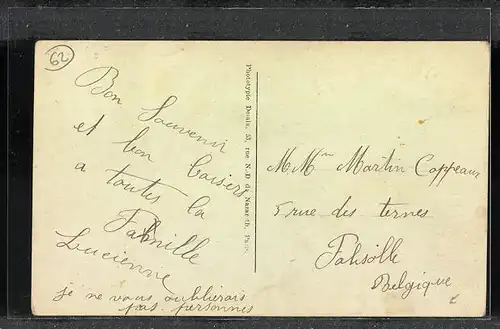 62
Bon Souvenir
et bon baisers
a toutes la
Famille
Lucienne
je ne vous oublierais
pas personnes
Phototypie Desaix, 53, rue N.-D de Nazareth, Paris
M. Mme Martin Cappeaux
5 rue des ternes
Falisolle
Belgique